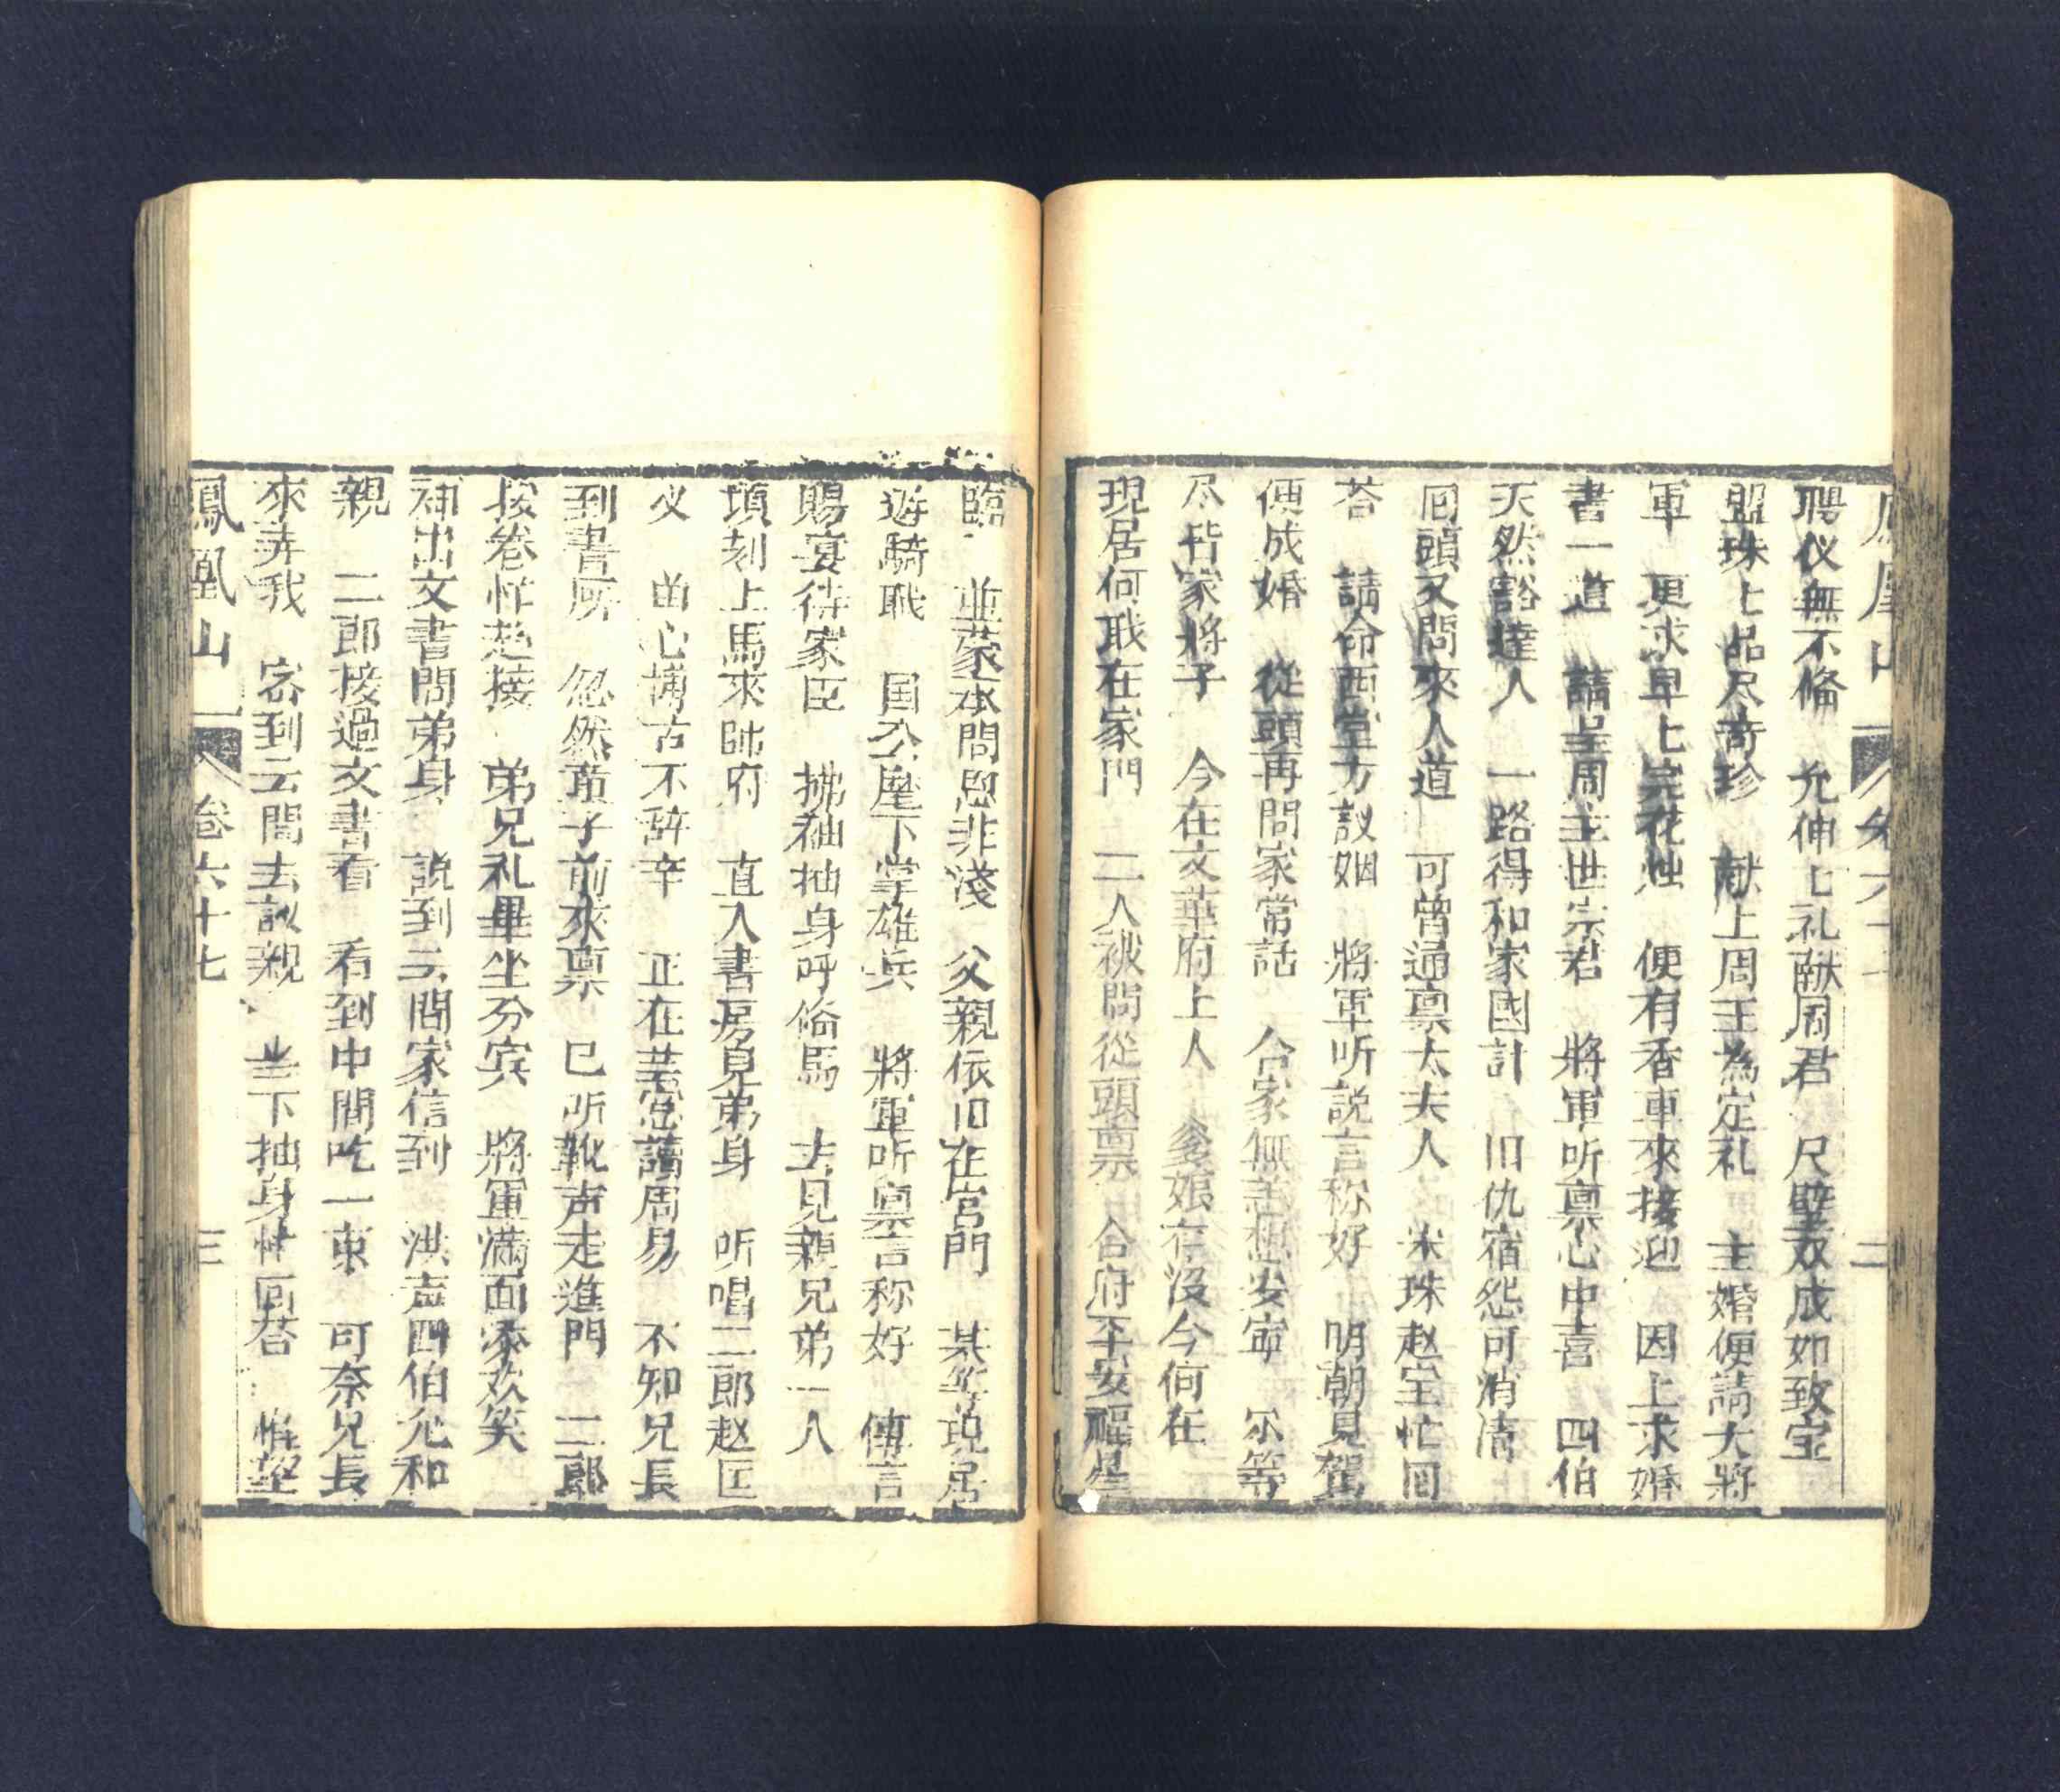 聘仪無不俻　允伸上礼献周君　尺璧双成如致宝
盟珠上品尽奇珍　献上周王為定礼　主婚便請大將
軍　更求早上完花烛　便有香車來接迎　因上求婚
書一道　請呈周主世宗君　將軍听禀心中喜　四伯
天然豁達人　一路得和家國計　旧仇宿怨可消清
回頭又問來人道　可曾通禀太夫人　米珠赵宝忙回
荅　請命西堂方議姻　將軍听説言称好　明朝見駕
便成婚　從頭再問家常話　合家無恙想安寕　尔等
尽皆家將子　今在文華府上人　爹娘存没今何在
現居何耺在家門　二人被問從頭禀　合府平安福星
臨　並蒙本問恩非淺　父親依旧在宮門　某等現居
遊騎耺　国公麾下掌雄兵　將軍听禀言称好　傳言
賜宴待家臣　拂袖抽身呼俻馬　去見親兄弟一人
頃刻上馬來帥府　直入書房見弟身　听唱二郎赵匡
义　曲心搆古不辞辛　正在芸窓讀周易　不知兄長
到書㕔　忽然蒼子前來禀　已听靴声走進門　二郎
抜卷忙趋接　弟兄礼畢坐分宾　將軍滿面添欢笑
袖出文書問弟身　説到云間家信到　洪声四伯允和
親　二郎接過文書看　看到中間吃一京　可奈兄長
來弄我　窃到云間去議親　当下抽身忙回荅　惟望
鳳凰山　卷六十七　三